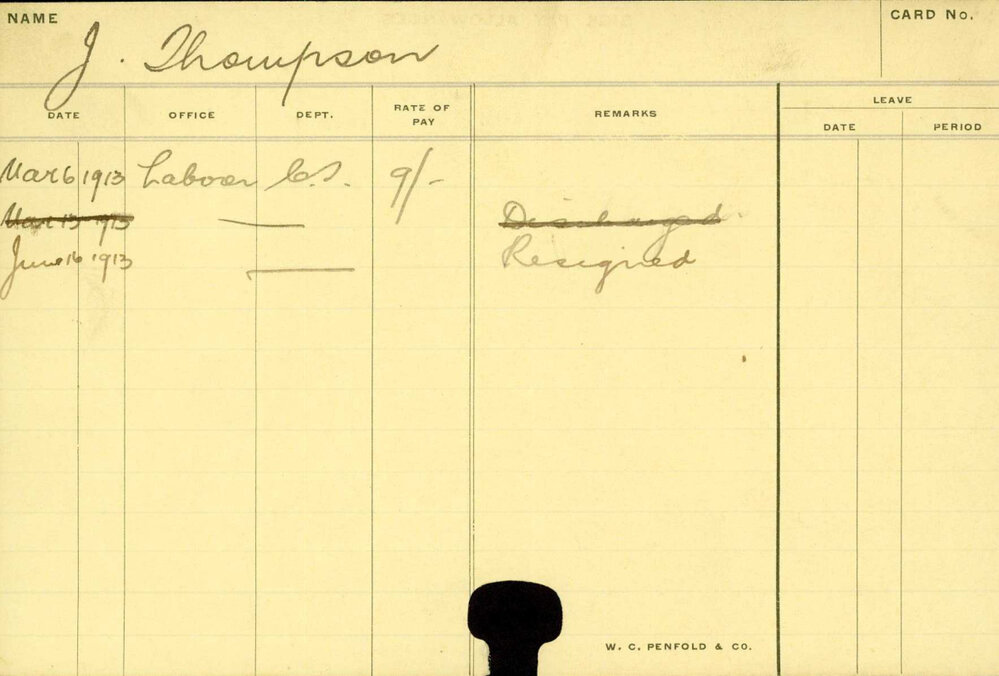 NAME
CARD No.
J. Thompson
DATE OFFICE DEPT. RATE OF PAY REMARKS LEAVE
DATE PERIOD
Mar 6 1913 Labour C.S. 9/-
Mar 13 1913 Discharged
June 16 1913 Resigned
W. C. PENFOLD & CO.